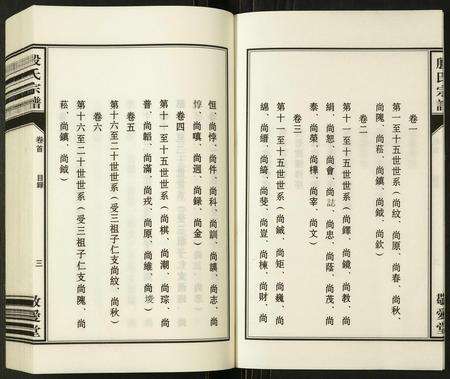 殷氏宗譜
卷一
第一至十五世世系(尚紋、尚原、尚春、尚秋、
尚隗、尚菘、尚鎮、尚鉞、尚欽)
卷二
第十一至十五世世系(尚鐸、尚鏡、尚教、尚
絹、尚恕、尚會、尚誌、尚忠、尚蔭、尚茂、尚
泰、尚榮、尚樺、尚宰、尚文)
卷三
第十一至十五世世系(尚鉞、尚矩、尚巍、尚
綿、尚縉、尚綺、尚斐、尚豈、尚棟、尚財、尚
敬愛堂
殷氏宗譜
卷首 目録
恒、尚悖、尚件、尚科、尚訓、尚謨、尚志、尚
惇、尚嗔、尚迥、尚録、尚金)
卷四
第十一至十五世世系(尚棋、尚潮、尚琮、尚
普、尚韜、尚滿、尚戎、尚原、尚維、尚埈)
卷五
第十六至二十世世系(受三祖子仁支尚紋、尚秋)
卷六
第十六至二十世世系(受三祖子仁支尚隗、尚
菘、尚鎮、尚鉞)
三
敬愛堂